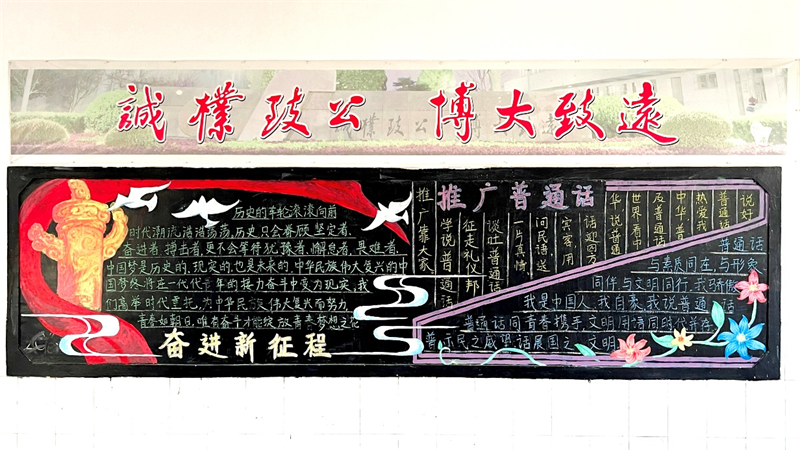 誠樸致公 博大致遠
历史的车轮滚滚向前
时代潮流浩浩荡荡,历史只会眷顾坚定者、
奋进者、搏击者,更不会等待犹豫者、懈怠者、畏难者.
中国梦是历史的、现实的,也是未来的.中华民族伟大复兴的中
国梦终将在一代代青年的接力奋斗中变为现实,我
们高举时代重托,为中华民族伟大复兴而努力.
青春如朝日,唯有奋斗才能绽放青春梦想之花
奋进新征程
推广普通话
说好
普通话
热爱我
中华普
及普通话
世界看中
华说普通
话迎四方
宾客用
问民诗选
一片真情
谈吐普通话
征走礼仪邦
学说普通话
推广靠大家
普通话
与素质同在,与形象
同伴,与文明同行,我骄傲
我是中国人,我自豪,我说普通话
普通话同青春携手,文明用语同时代并存